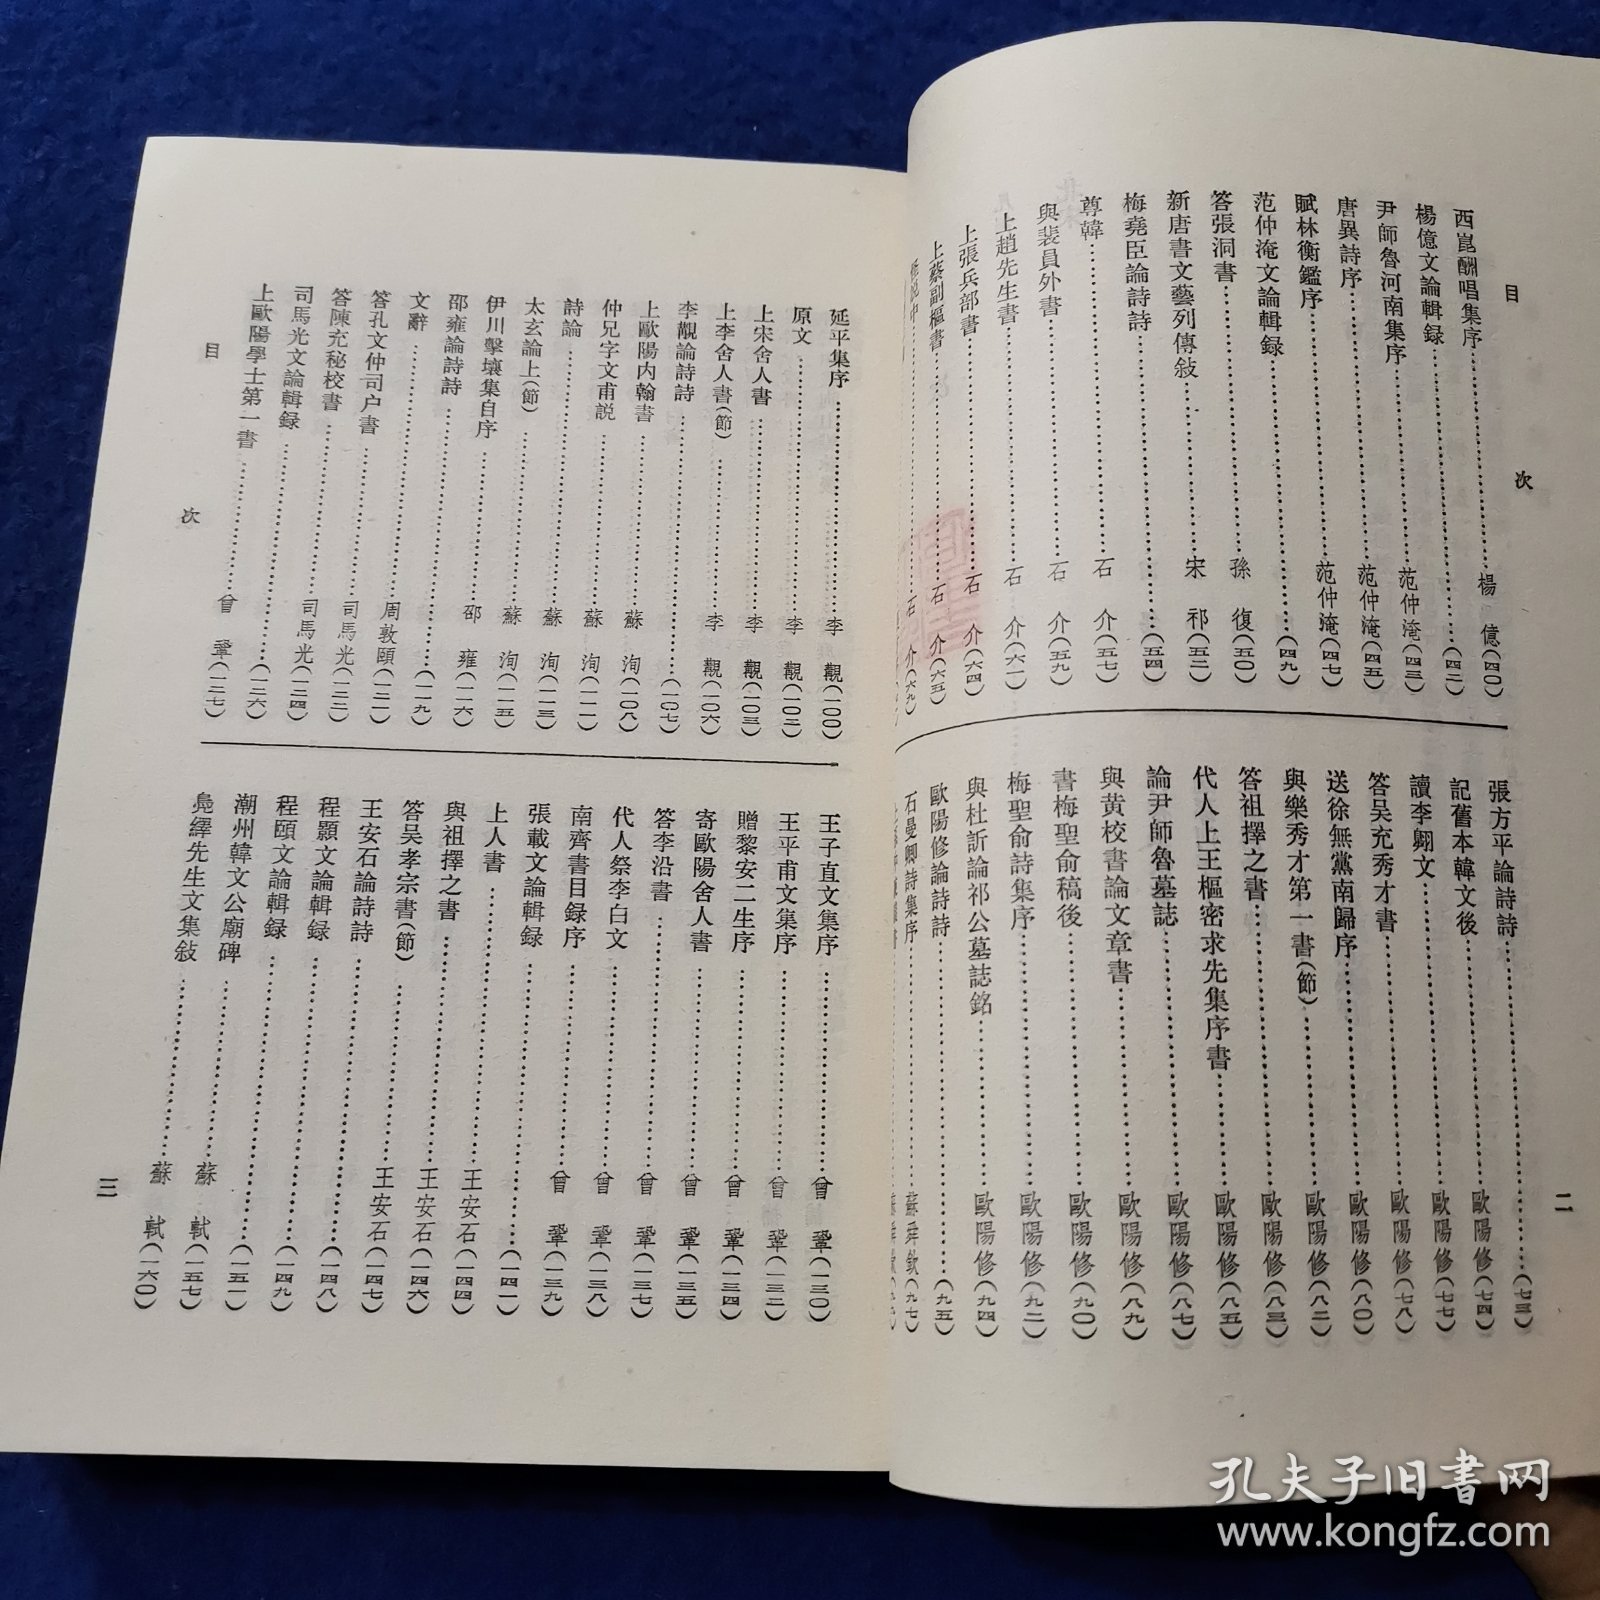 目 次
二
西崑酬唱集序……楊 億(四〇)
楊億文論輯録……(四二)
尹師魯河南集序……范仲淹(四三)
唐異詩序……范仲淹(四五)
賦林衡鑑序……范仲淹(四七)
范仲淹文論輯録……(四九)
答張洞書……孫 復(五〇)
新唐書文藝列傳敍……宋 祁(五二)
梅堯臣論詩詩……(五四)
尊韓……石 介(五七)
與裴員外書……石 介(五九)
上趙先生書……石 介(六一)
上張兵部書……石 介(六四)
上蔡副樞書……石 介(六五)
石 介(六九)
張方平論詩詩……(七三)
記舊本韓文後……歐陽修(七四)
讀李翺文……歐陽修(七七)
答吴充秀才書……歐陽修(七八)
送徐無黨南歸序……歐陽修(八〇)
與樂秀才第一書(節)……歐陽修(八二)
答祖擇之書……歐陽修(八三)
代人上王樞密求先集序書……歐陽修(八五)
論尹師魯墓誌……歐陽修(八七)
與黄校書論文章書……歐陽修(八九)
書梅聖俞稿後……歐陽修(九〇)
梅聖俞詩集序……歐陽修(九二)
與杜訢論祁公墓誌銘……歐陽修(九四)
歐陽修論詩詩……(九五)
石曼卿詩集序……蘇舜欽(九七)
延平集序……李 覯(一〇〇)
原文……李 覯(一〇二)
上宋舍人書……李 覯(一〇三)
上李舍人書(節)……李 覯(一〇六)
李覯論詩詩……(一〇七)
上歐陽内翰書……蘇 洵(一〇八)
仲兄字文甫説……蘇 洵(一一一)
詩論……蘇 洵(一一三)
太玄論上(節)……蘇 洵(一一五)
伊川擊壤集自序……邵 雍(一一六)
邵雍論詩詩……(一一九)
文辭……周敦頤(一二一)
答孔文仲司户書……司馬光(一二二)
答陳充秘校書……司馬光(一二四)
司馬光文論輯録……(一二六)
上歐陽學士第一書……曾 鞏(一二七)
王子直文集序……曾 鞏(一三〇)
王平甫文集序……曾 鞏(一三二)
贈黎安二生序……曾 鞏(一三四)
寄歐陽舍人書……曾 鞏(一三五)
答李沿書……曾 鞏(一三七)
代人祭李白文……曾 鞏(一三八)
南齊書目録序……曾 鞏(一三九)
張載文論輯録……(一四一)
上人書……王安石(一四四)
與祖擇之書……王安石(一四六)
答吴孝宗書(節)……王安石(一四七)
王安石論詩詩……(一四八)
程顥文論輯録……(一四九)
程頤文論輯録……(一五一)
潮州韓文公廟碑……蘇 軾(一五七)
鳧繹先生文集敍……蘇 軾(一六〇)
目 次
三
孔夫子旧书网
www.kongfz.com